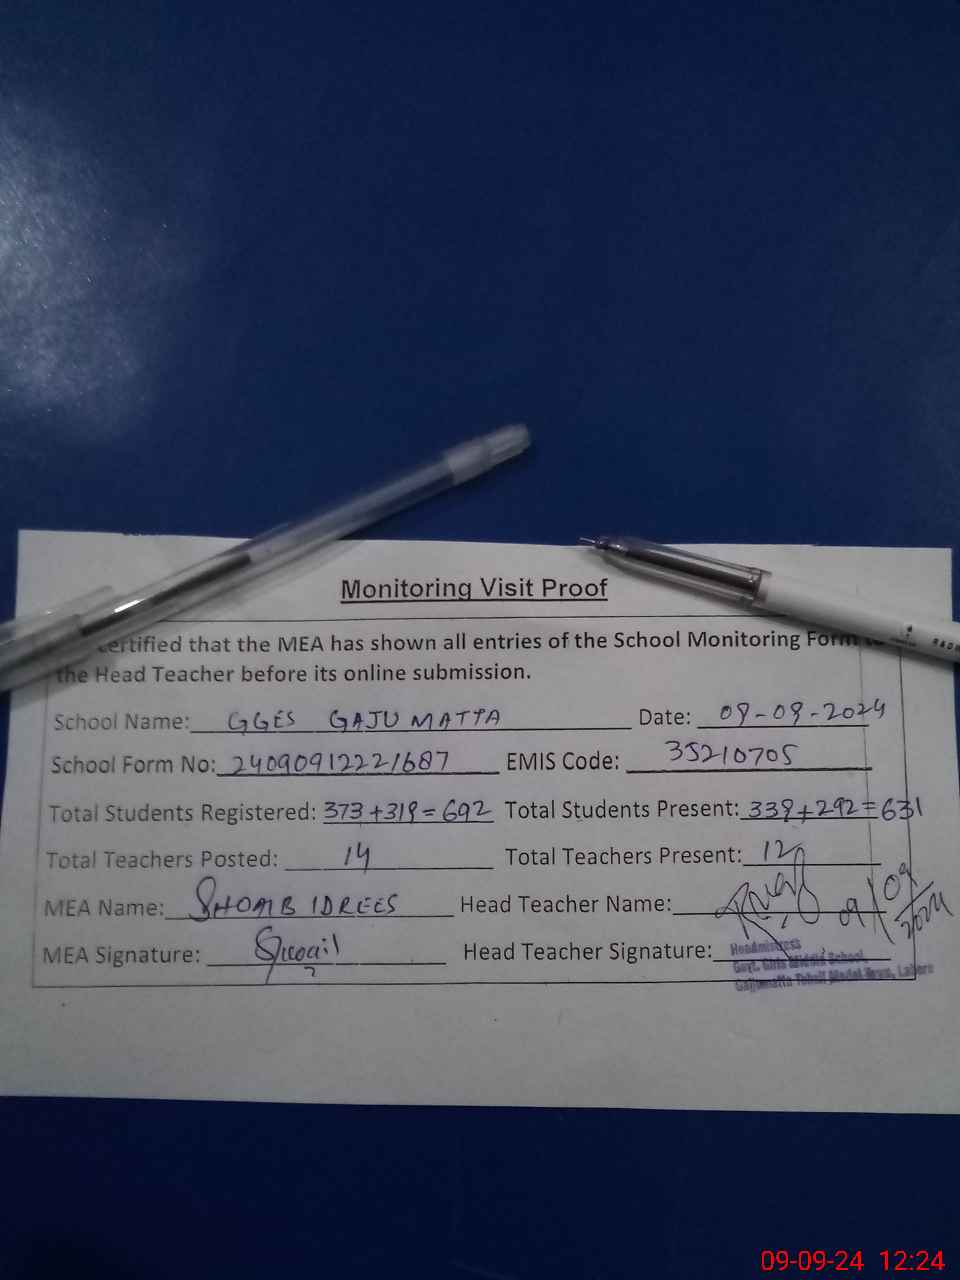 Monitoring Visit Proof
ertified that the MEA has shown all entries of the School Monitoring Form to
the Head Teacher before its online submission.
School Name: GGES GAJU MATTA Date: 09-09-2024
School Form No: 24090912221687 EMIS Code: 35210705
Total Students Registered: 373+319=692 Total Students Present: 339+292=631
Total Teachers Posted: 14 Total Teachers Present: 12
MEA Name: SHOAIB IDREES Head Teacher Name: 09/09/2024
MEA Signature: Head Teacher Signature:
Headmistress
Govt. Girls Middle School
Gajjumatta Tehsil Model Town, Lahore
09-09-24 12:24